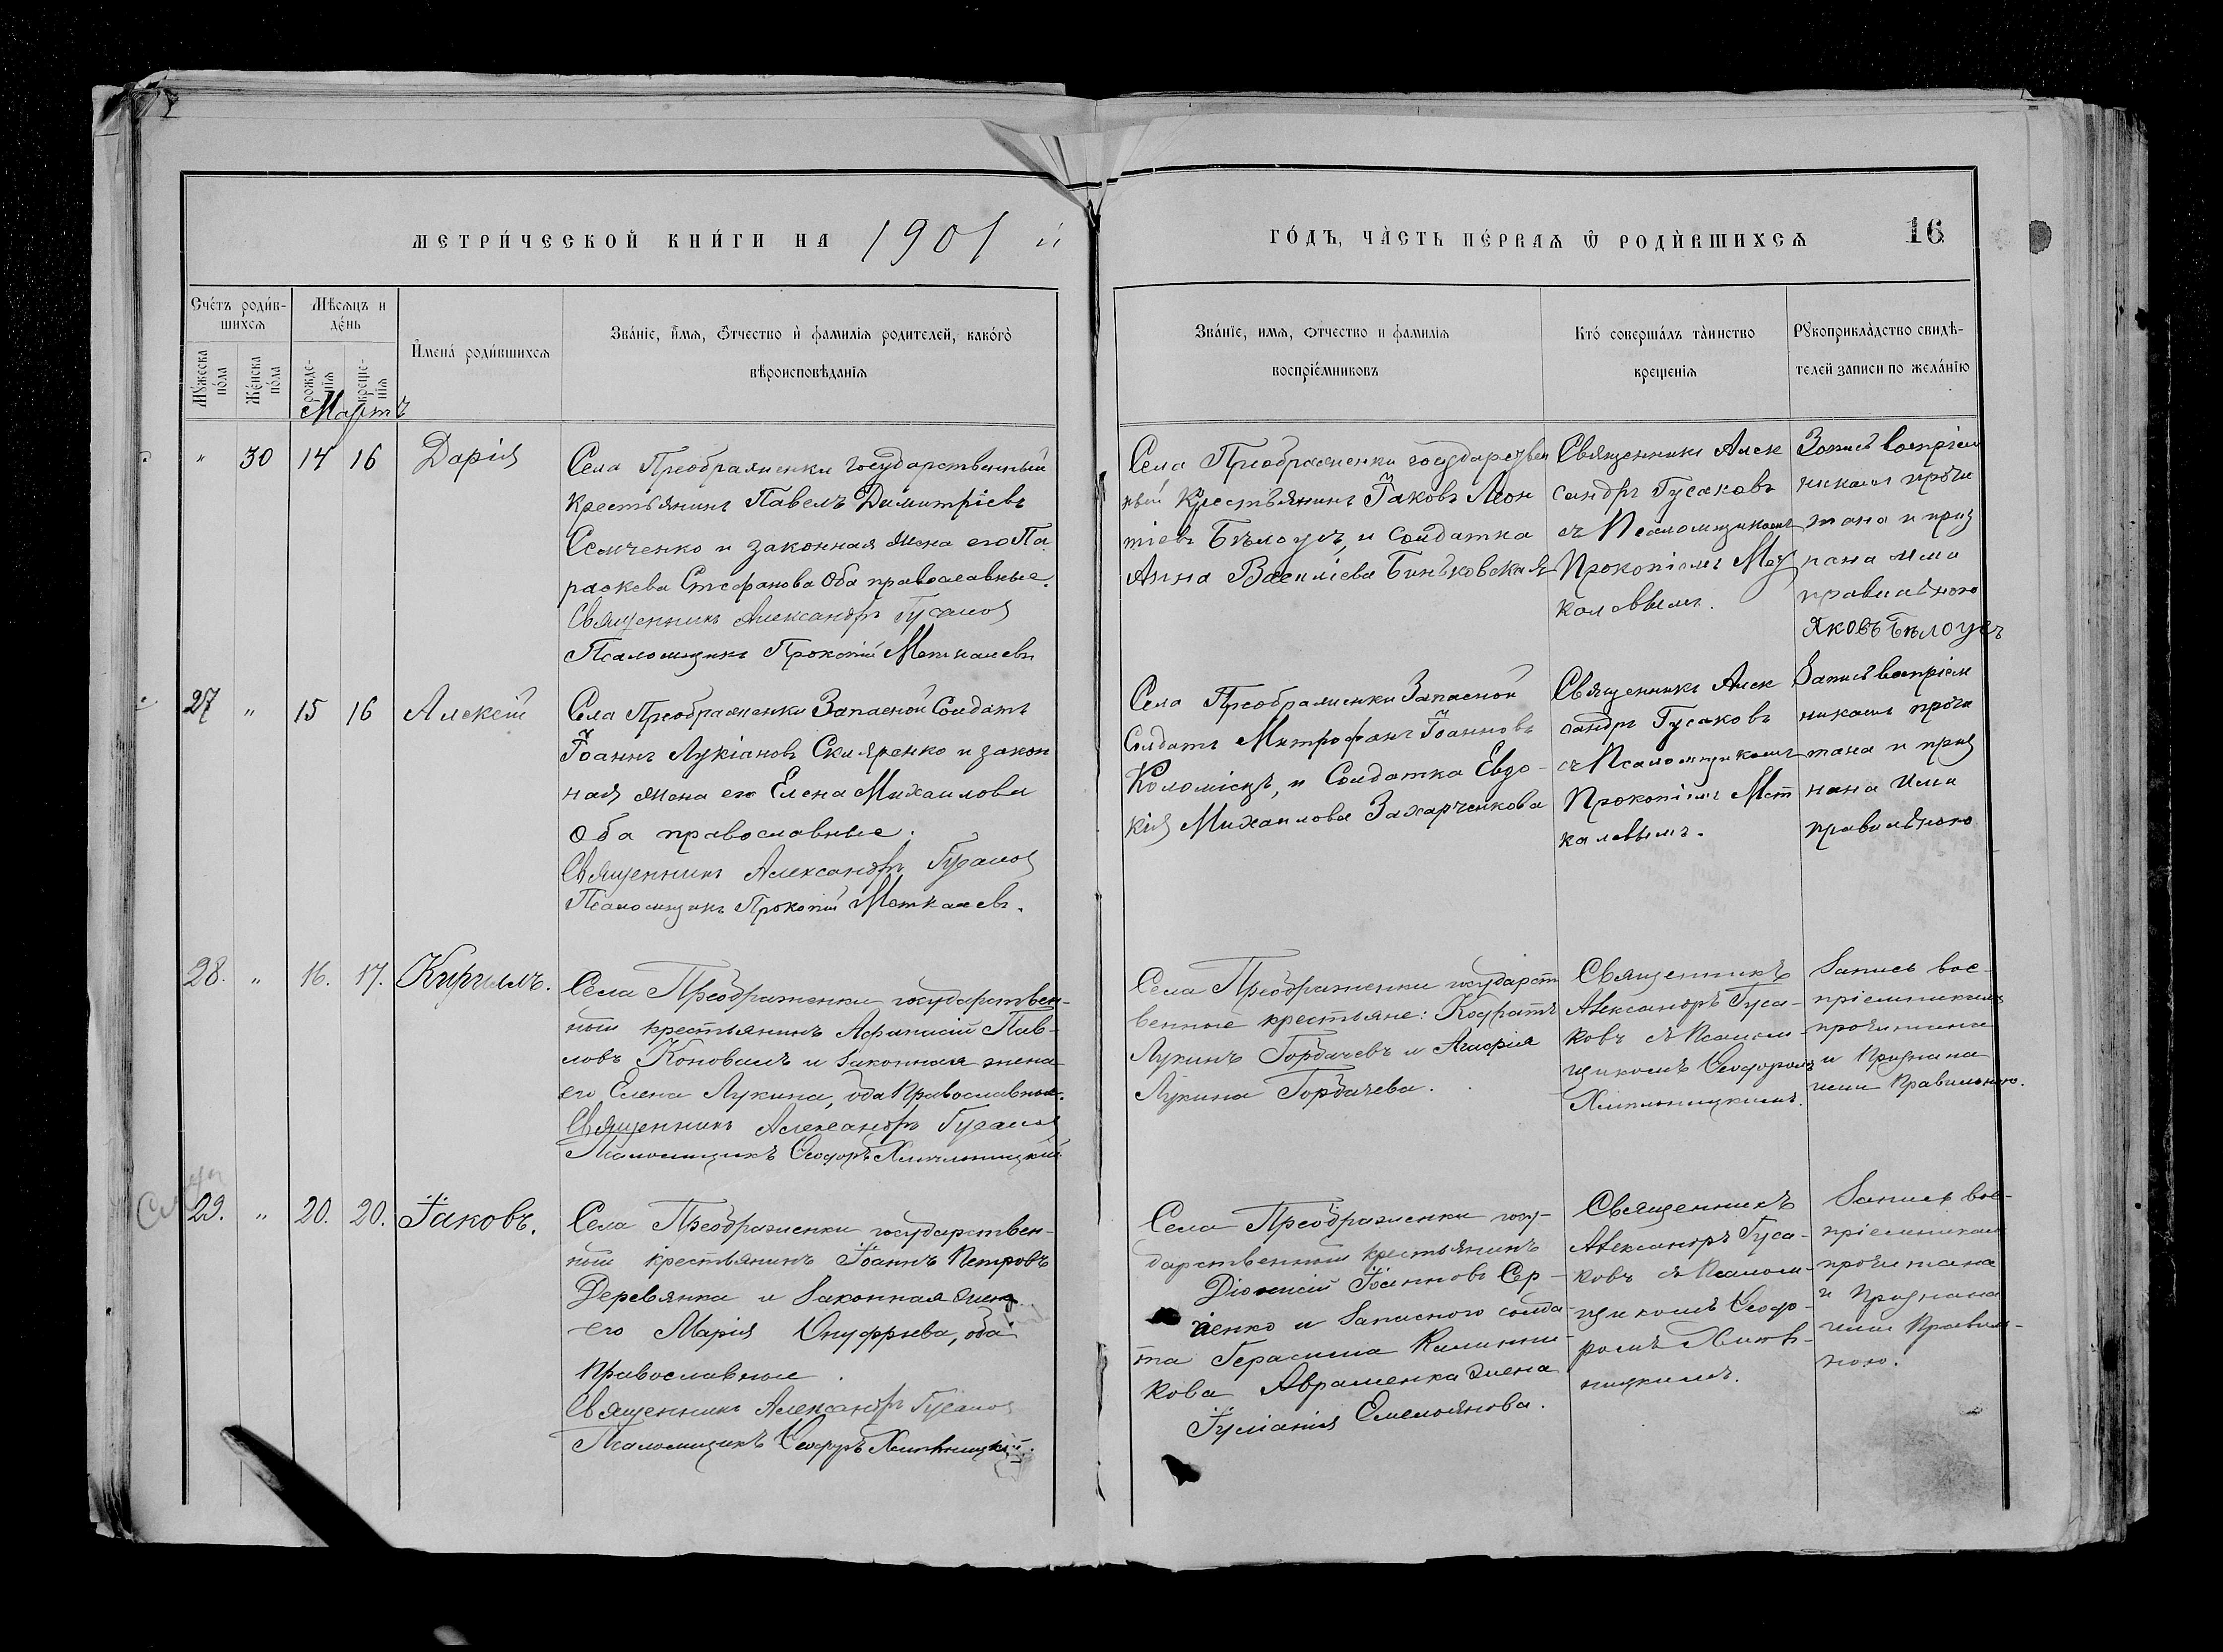 МЕТРИ́ЧЕСКОЙ КНИ́ГИ НА 1901 й
ГО́ДЪ, ЧА̀СТЬ ПЕ́РВАѦ Ѿ РОДЍВШИХСѦ
16
Сче́тъ роди́в-
шихсѧ
Мѣсѧцъ и
де́нь
И҆мена̀ роди́вшихсѧ
Зва́нїе, и҆́мѧ, ѻ҆́тчество и҆ фамилїѧ родителей, како́гѡ
вѣроисповѣданїѧ
Мꙋ́жеска
по́ла
Же́нска
по́ла
рожде-
нїѧ
креще-
нїѧ
Мартъ
Зва́нїе, имѧ, ѻтчество и фамилїѧ
воспрїе́мниковъ
Кто́ соверша́лъ та̀инство
креще́нїѧ
Рꙋкоприкла̀дство свидѣ-
телей записи по жела́нїю
" 30 14 16 Дарія
Села Преображенки государственный
крестьянинъ Павелъ Димитріевъ
Семченко и законная жена его Па
раскева Стефанова Оба православные.
Священникъ Александръ Гусаковъ
Псаломщикъ Прокопій Меткалевъ
Села Преображенки государствен
ный крестьянинъ Іаковъ Леон
тіевъ Бѣлоусъ, и солдатка
Анна Василіева Биньковская
Священникъ Алек
сандръ Гусаковъ
съ Псаломщикомъ
Прокопіемъ Мет
калевымъ.
Запись воспріем
никамъ прочи
тана и приз
нана ими
правильною
Яковъ Бѣлоусъ
27 " 15 16 Алексій
Села Преображенки Запасной Солдатъ
Іоаннъ Лукіановъ Скляренко и закон
ная жена его Елена Михаилова
Оба православные.
Священникъ Александръ Гусаковъ
Псаломщикъ Прокопій Меткалевъ.
Села Преображенки Запасной
Солдатъ Митрофанъ Іоанновъ
Коломіецъ, и Солдатка Евдо-
кія Михаилова Захарченкова
Священникъ Алек
сандръ Гусаковъ
съ Псаломщикомъ
Прокопіемъ Мет
калевымъ.
Запись воспріем
никамъ прочи
тана и приз
нана Ими
правильною
28. " 16. 17. Кириллъ.
Села Преображенки государствен-
ный крестьянинъ Афанасій Пав-
ловъ Коновалъ и законная жена
его Елена Лукина, оба Православные.
Священникъ Александръ Гусаковъ
Псаломщикъ Ѳеодоръ Хмильницкій
Села Преображенки государст
венные крестьяне: Кодратъ
Лукинъ Горбачевъ и Агафія
Лукина Горбачева.
Священникъ
Александръ Гуса-
ковъ съ Псалом-
щикомъ Ѳеодоромъ
Хмильницкимъ.
Запись вос-
пріемникамъ
прочитана
и Признана
ими Правильною.
29. " 20. 20. Іаковъ.
Села Преображенки государствен-
ный крестьянинъ Іоаннъ Петровъ
Деревянка и Законная жена
его Марія Онуфріева, оба
Православные.
Священникъ Александръ Гусаковъ
Псаломщикъ Ѳеодоръ Хмильницкій.
Села Преображенки госу-
дарственный крестьянинъ
Діонисій Іоанновъ Сер-
іенко и Запасного солда-
та Герасима Калинни-
кова Авраменка жена
Іуліанія Емельянова.
Священникъ
Александръ Гуса-
ковъ съ Псалом-
щикомъ Ѳеодо-
ромъ Хмиль-
ницкимъ.
Запись вос-
пріемникамъ
прочитана
и Признана
ими Правиль-
ною.